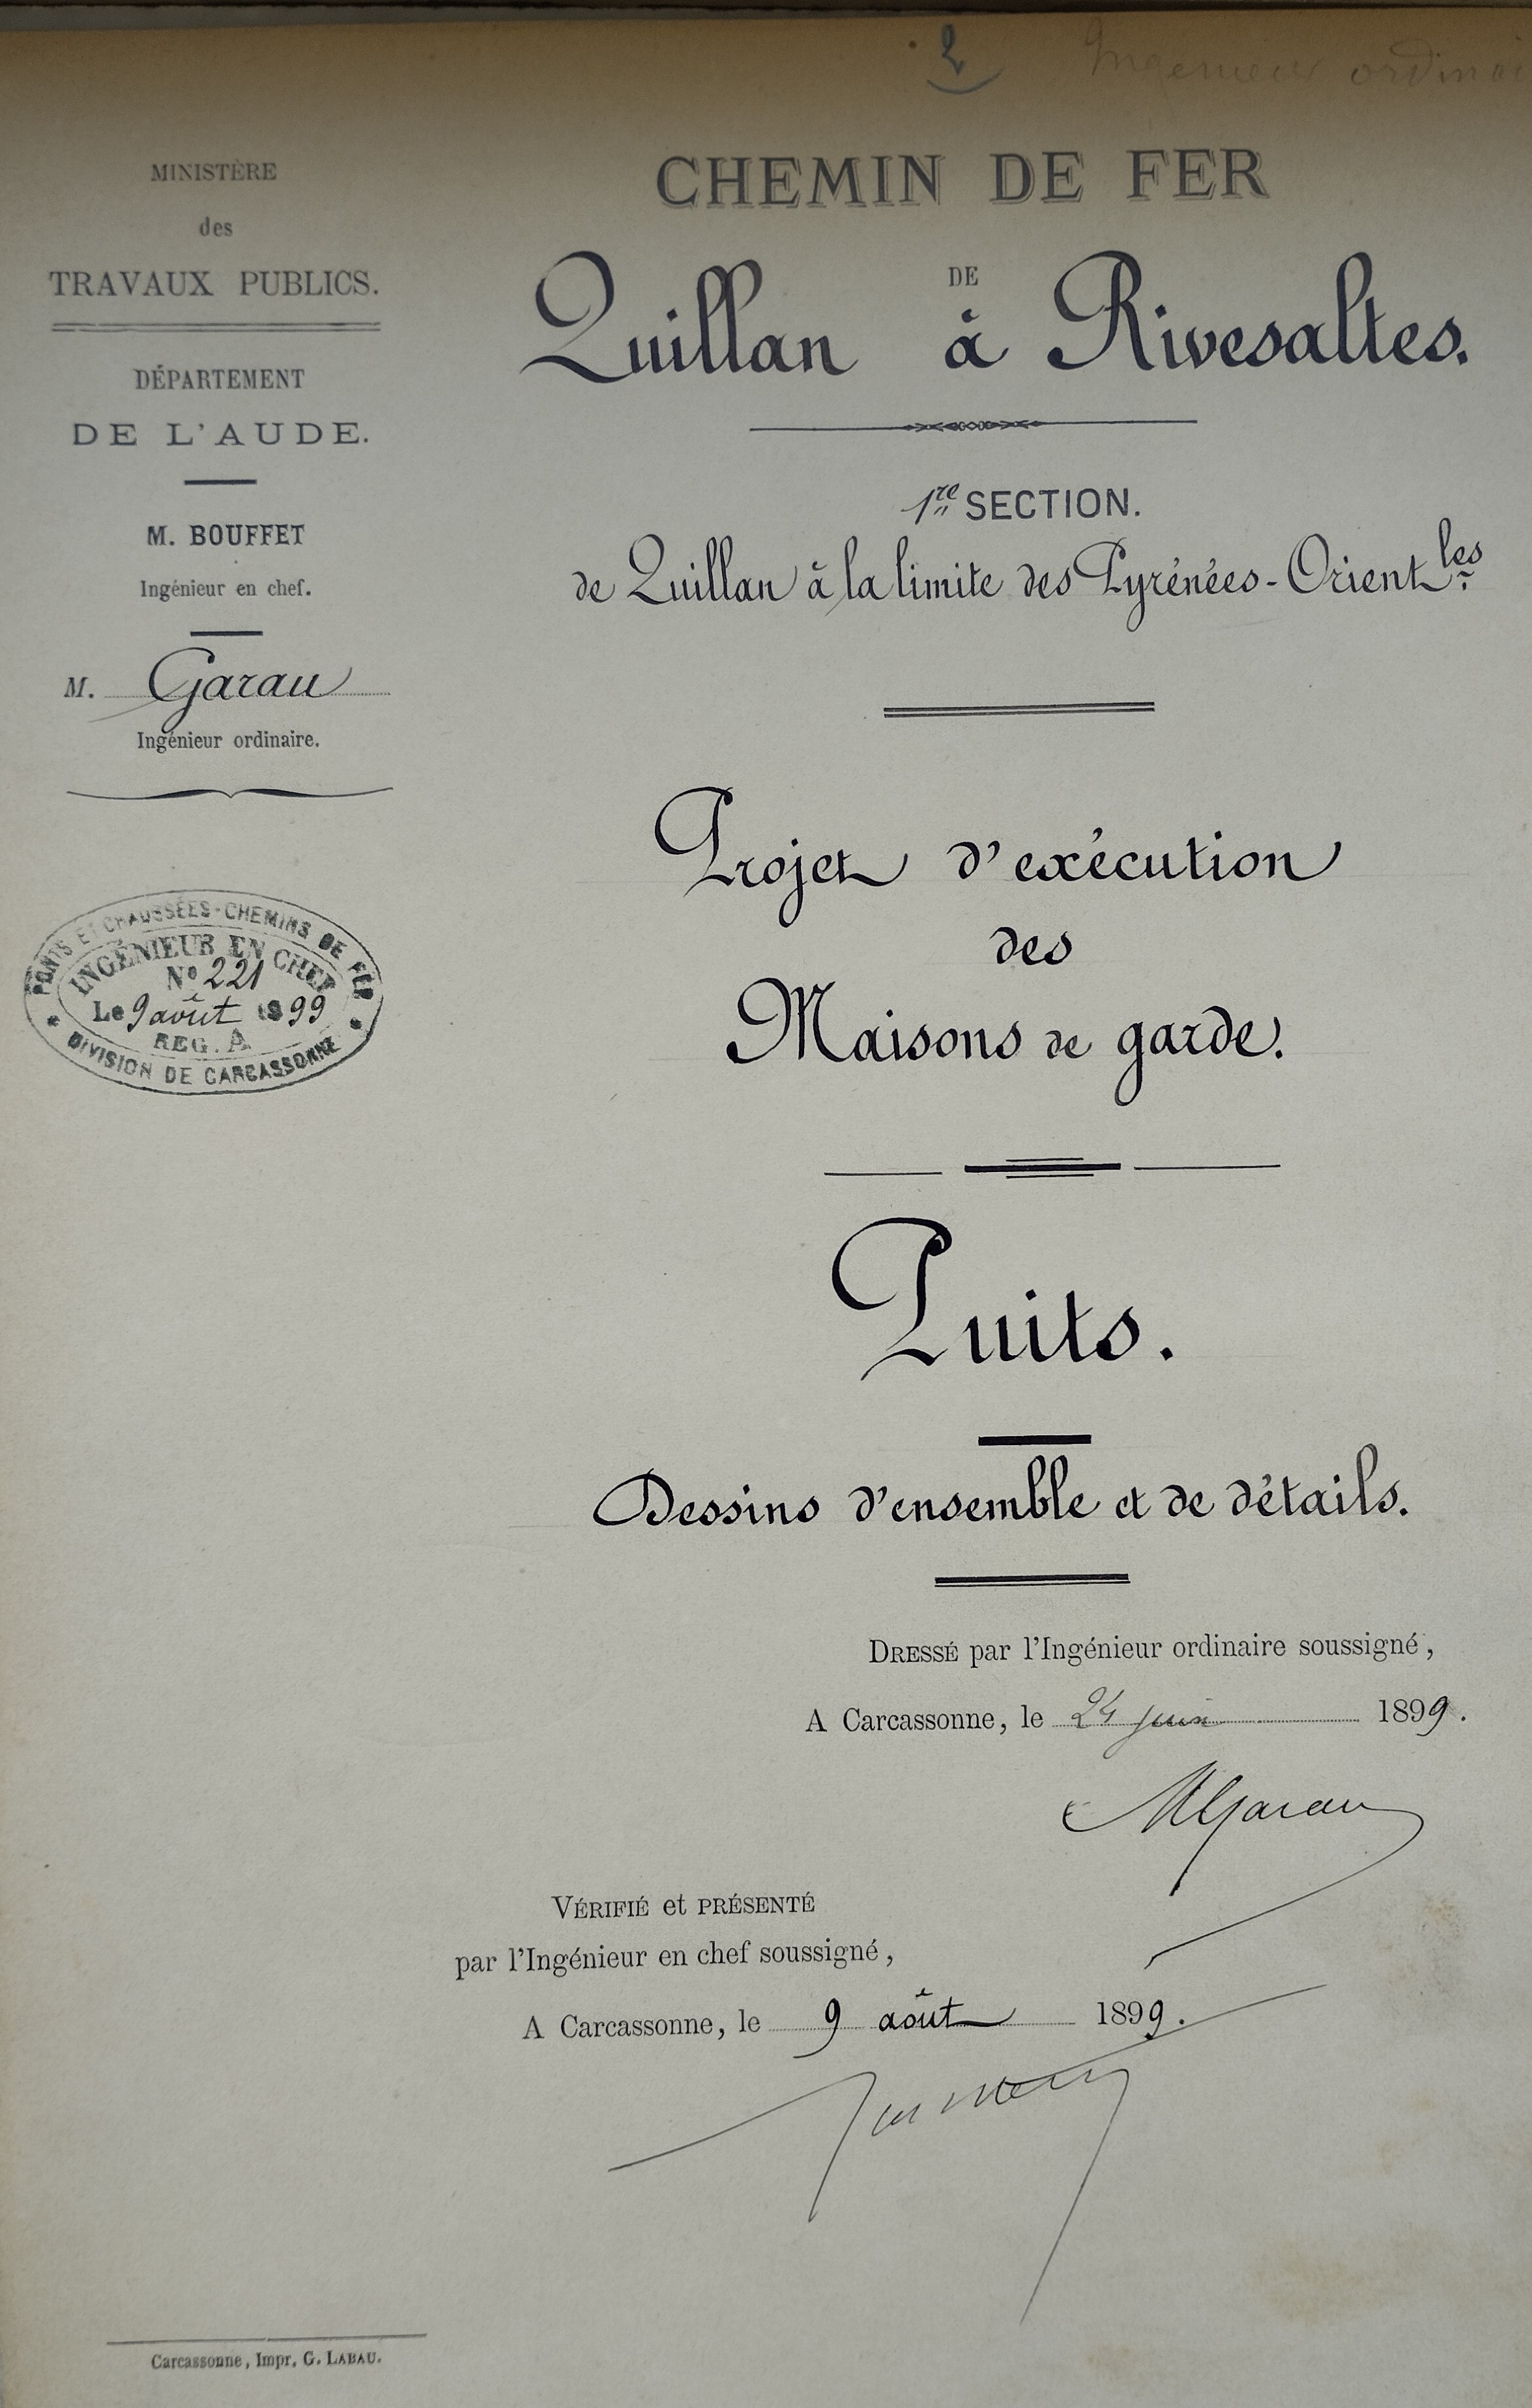 2 Ingénieur ordinai
MINISTÈRE
des
TRAVAUX PUBLICS.
DÉPARTEMENT
DE L'AUDE.
M. BOUFFET
Ingénieur en chef.
M. Garau
Ingénieur ordinaire.
PONTS ET CHAUSSÉES-CHEMINS DE FER
INGÉNIEUR EN CHEF
N° 221
Le 9 août 1899
REG. A
DIVISION DE CARCASSONNE
CHEMIN DE FER
DE
Quillan à Rivesaltes.
1re SECTION.
de Quillan à la limite des Pyrénées-Orientles.
Projet d'exécution
des
Maisons de garde.
Puits.
Dessins d'ensemble et de détails.
DRESSÉ par l'Ingénieur ordinaire soussigné,
A Carcassonne, le 24 juin 1899.
MGarau
VÉRIFIÉ et PRÉSENTÉ
par l'Ingénieur en chef soussigné,
A Carcassonne, le 9 août 1899.
Carcassonne, Impr. G. LABAU.